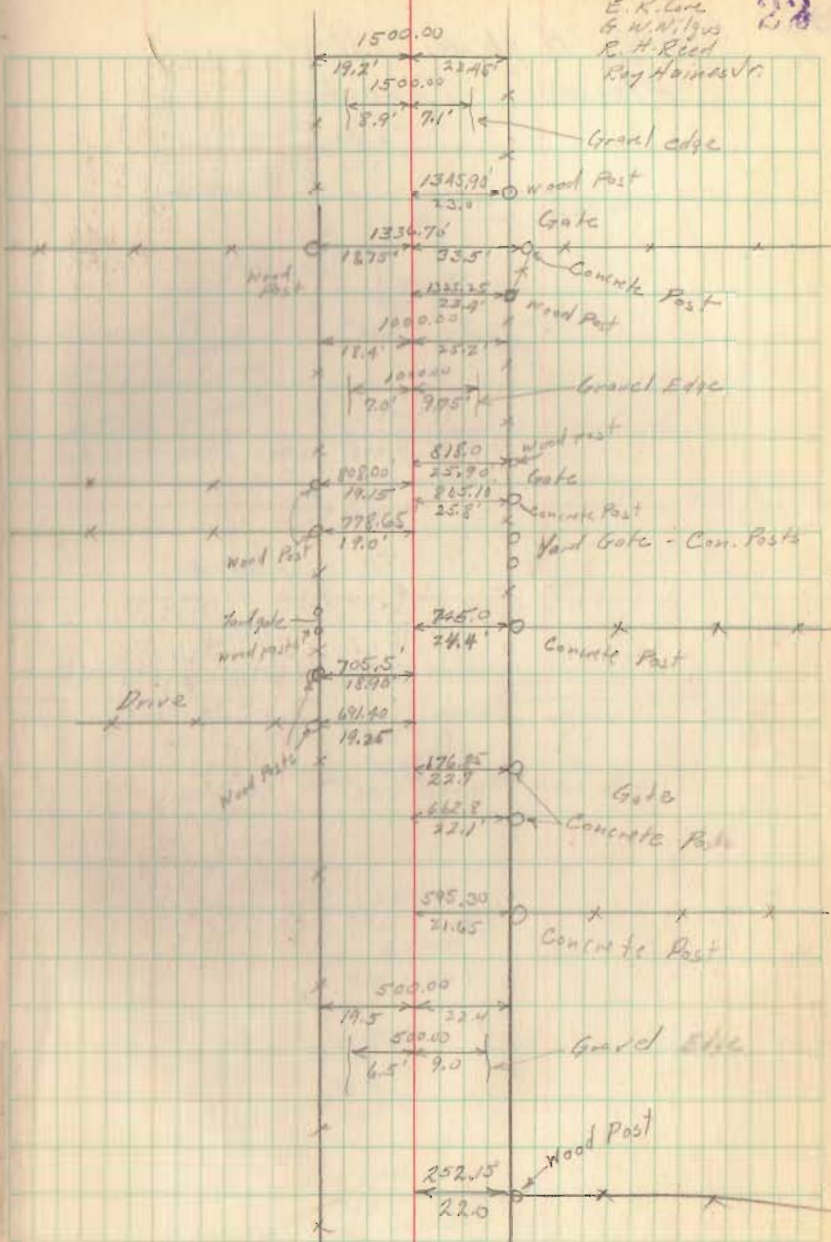 E. K. 
G. W. Wilgus
R. H. Reed
Roy Haines Jr.
23
1500.00
19.2' 22.45'
1500.00
8.9' 7.1'
Gravel edge
1345.90'
23.0
Wood Post
Gate
1336.70'
18.75' 33.5'
Wood Post
Concrete Post
1325.25
23.4'
Wood Post
1000.00
18.4' 25.2'
1000.00
7.0' 9.75'
Gravel Edge
818.0
25.90
Wood Post
Gate
808.00'
19.15'
805.10'
25.8'
Concrete Post
778.65
19.0'
Wood Post
Yard Gate - Con. Posts
Yard gate
Wood posts
745.0
24.4'
Concrete Post
705.5'
18.90'
Drive
691.40
19.25
Wood Posts
676.85
22.7
Gate
662.8
22.1'
Concrete Po
595.30
21.65
Concrete Post
500.00
19.5 22.4
500.00
6.5' 9.0
Gravel Edge
Wood Post
252.15
22.0